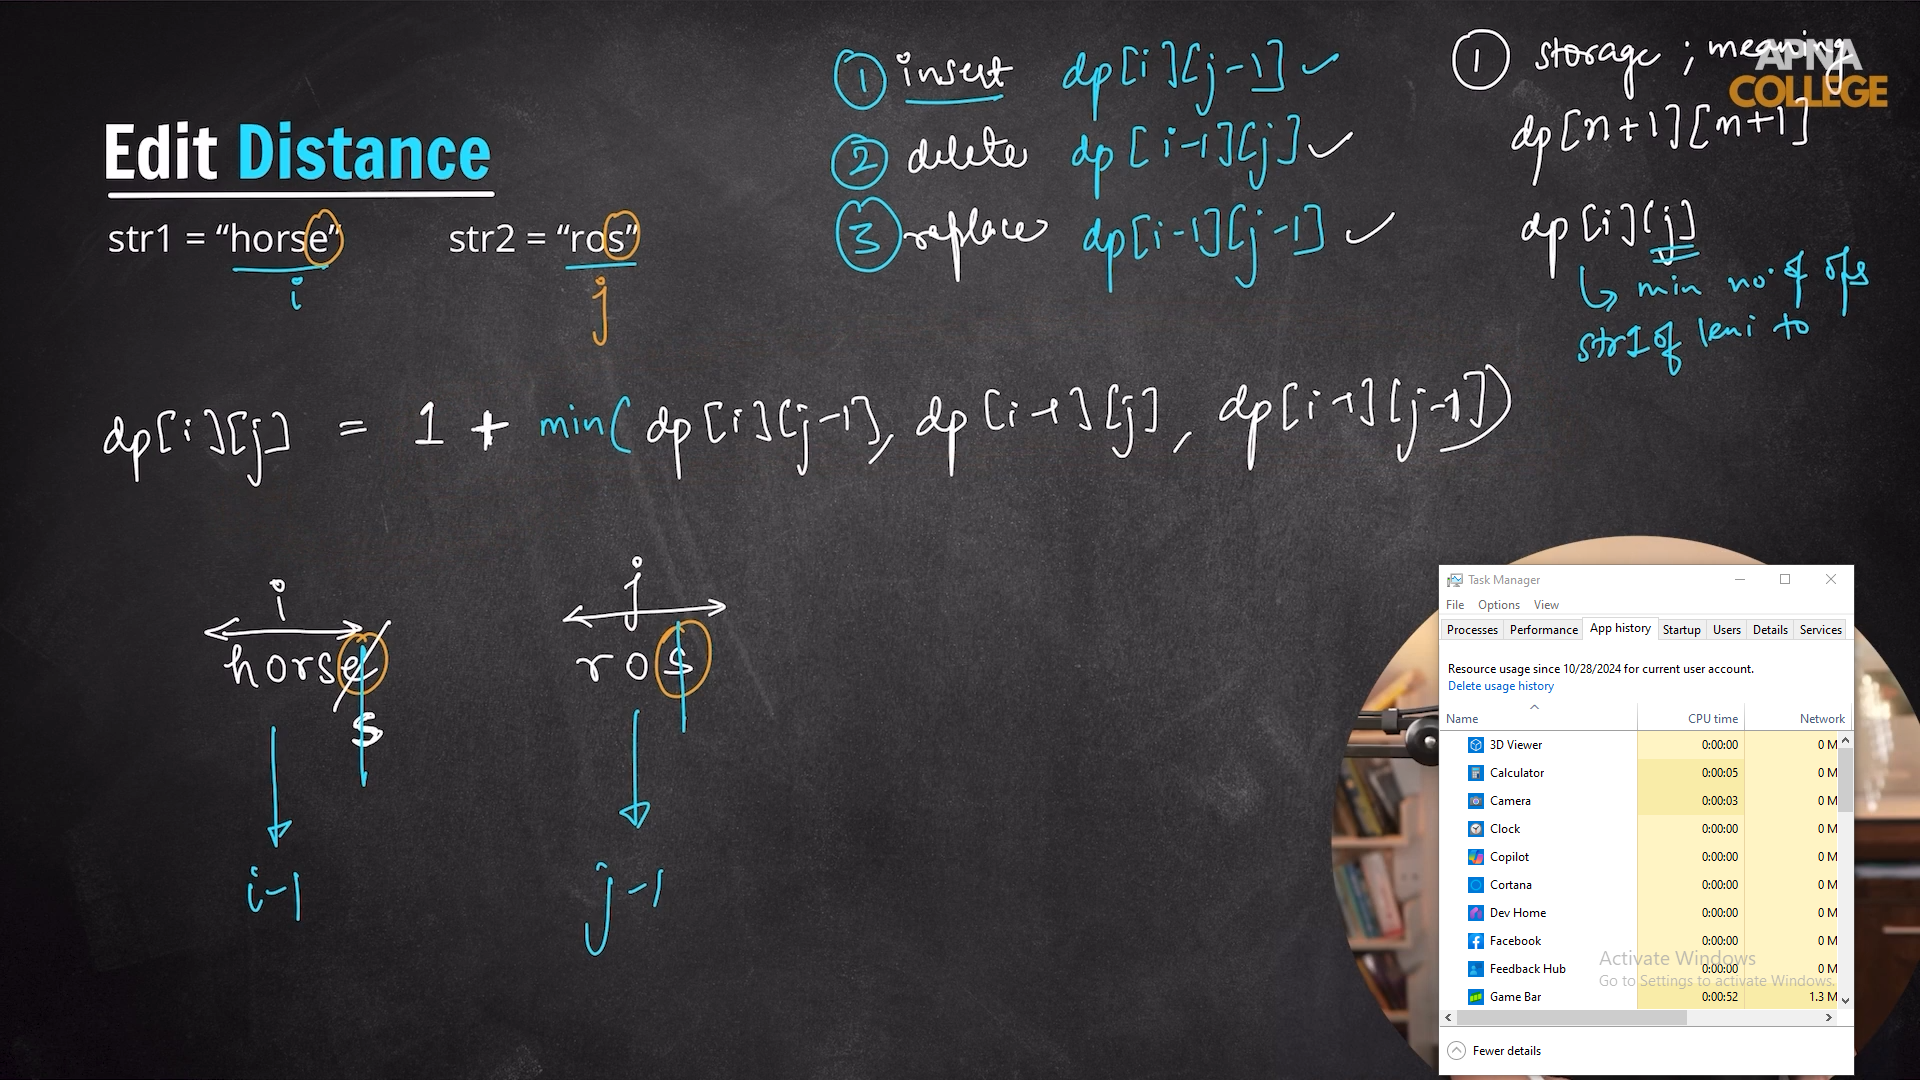 APNA
COLLEGE
Edit Distance
str1 = “horse” str2 = “ros”
i
j
① insert dp[i][j-1] ✓
② delete dp[i-1][j] ✓
③ replace dp[i-1][j-1] ✓
① storage ; meaning
dp[n+1][m+1]
dp[i][j]
↳ min no. of ops
str1 of len i to
dp[i][j] = 1 + min( dp[i][j-1], dp[i-1][j], dp[i-1][j-1])
i
horse
s
i-1
j
ros
j-1
Task Manager
File Options View
Processes Performance App history Startup Users Details Services
Resource usage since 10/28/2024 for current user account.
Delete usage history
Name CPU time Network
3D Viewer 0:00:00 0 M
Calculator 0:00:05 0 M
Camera 0:00:03 0 M
Clock 0:00:00 0 M
Copilot 0:00:00 0 M
Cortana 0:00:00 0 M
Dev Home 0:00:00 0 M
Facebook 0:00:00 0 M
Feedback Hub 0:00:00 0 M
Game Bar 0:00:52 1.3 M
Activate Windows
Go to Settings to activate Windows.
Fewer details